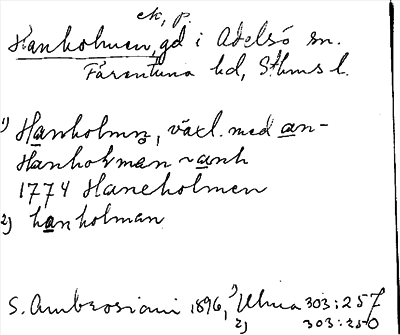 ek, p.
Hanholmen, gd i Adelsö sn.
Färentuna hd, Sthms l.
1) Hanholmņ, växl. med an-
Hanholman ~ anh
1774 Haneholmen
2) hanholman
S. Ambrosiani 1896, 1) Uhna 303:257
2) 303:250